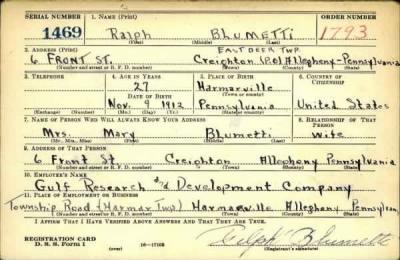 SERIAL NUMBER 1. NAME (Print) ORDER NUMBER
1469 Ralph BLUMETTI 1793
(First) (Middle) (Last)
2. ADDRESS (Print) EAST DEER TWP.
6 FRONT ST. Creighton (P.O.) Allegheny-Pennsylvania
(Number and street or R. F. D. number) (Town) (County) (State)
3. TELEPHONE 4. AGE IN YEARS 5. PLACE OF BIRTH 6. COUNTRY OF CITIZENSHIP
27 Harmarville
DATE OF BIRTH (Town or county)
Nov. 9 1912 Pennsylvania United States
(Exchange) (Number) (Mo.) (Day) (Yr.) (State or country)
7. NAME OF PERSON WHO WILL ALWAYS KNOW YOUR ADDRESS 8. RELATIONSHIP OF THAT PERSON
Mrs. Mary Blumetti wife
(Mr., Mrs., Miss) (First) (Middle) (Last)
9. ADDRESS OF THAT PERSON
6 Front St. Creighton Allegheny Pennsylvania
(Number and street or R. F. D. number) (Town) (County) (State)
10. EMPLOYER'S NAME
Gulf Research and Development Company
11. PLACE OF EMPLOYMENT OR BUSINESS
Township Road (Harmar Twp.) Harmarville Allegheny Pennsylvan
(Number and street or R. F. D. number) (Town) (County) (State)
I AFFIRM THAT I HAVE VERIFIED ABOVE ANSWERS AND THAT THEY ARE TRUE.
REGISTRATION CARD
D. S. S. Form 1 (over) 16-17105 Ralph Blumetti
(Registrant's signature)